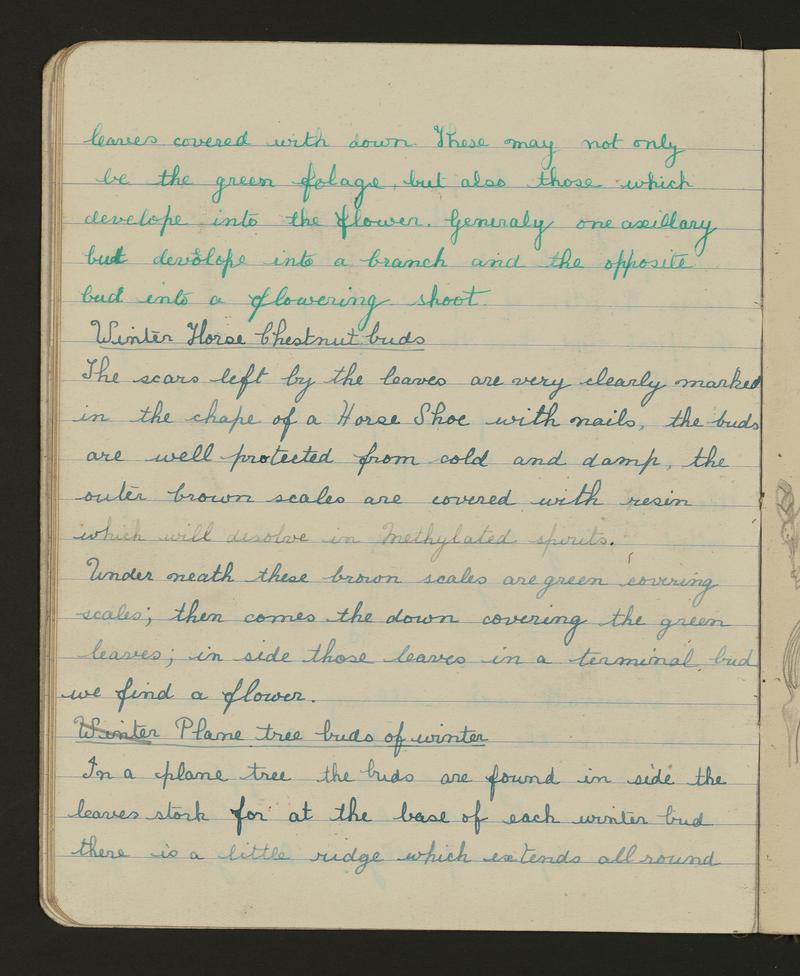 leaves covered with down. These may not only
be the green folage, but also those which
develope into the flower. Generaly one axillary
but devolope into a branch and the opposite
bud into a flowering shoot.
Winter Horse Chestnut buds
The scars left by the leaves are very clearly marked
in the chape of a Horse Shoe with nails, the buds
are well protected from cold and damp, the
outer brown scales are covered with resin
which will disolve in Methylated spirits.
Under neath these brown scales are green covering
scales; then comes the down covering the green
leaves; in side those leaves in a terminal bud
we find a flower.
Winter Plane tree buds of winter
In a plane tree the buds are found in side the
leaves stork for at the base of each winter bud
there is a little ridge which extends all round